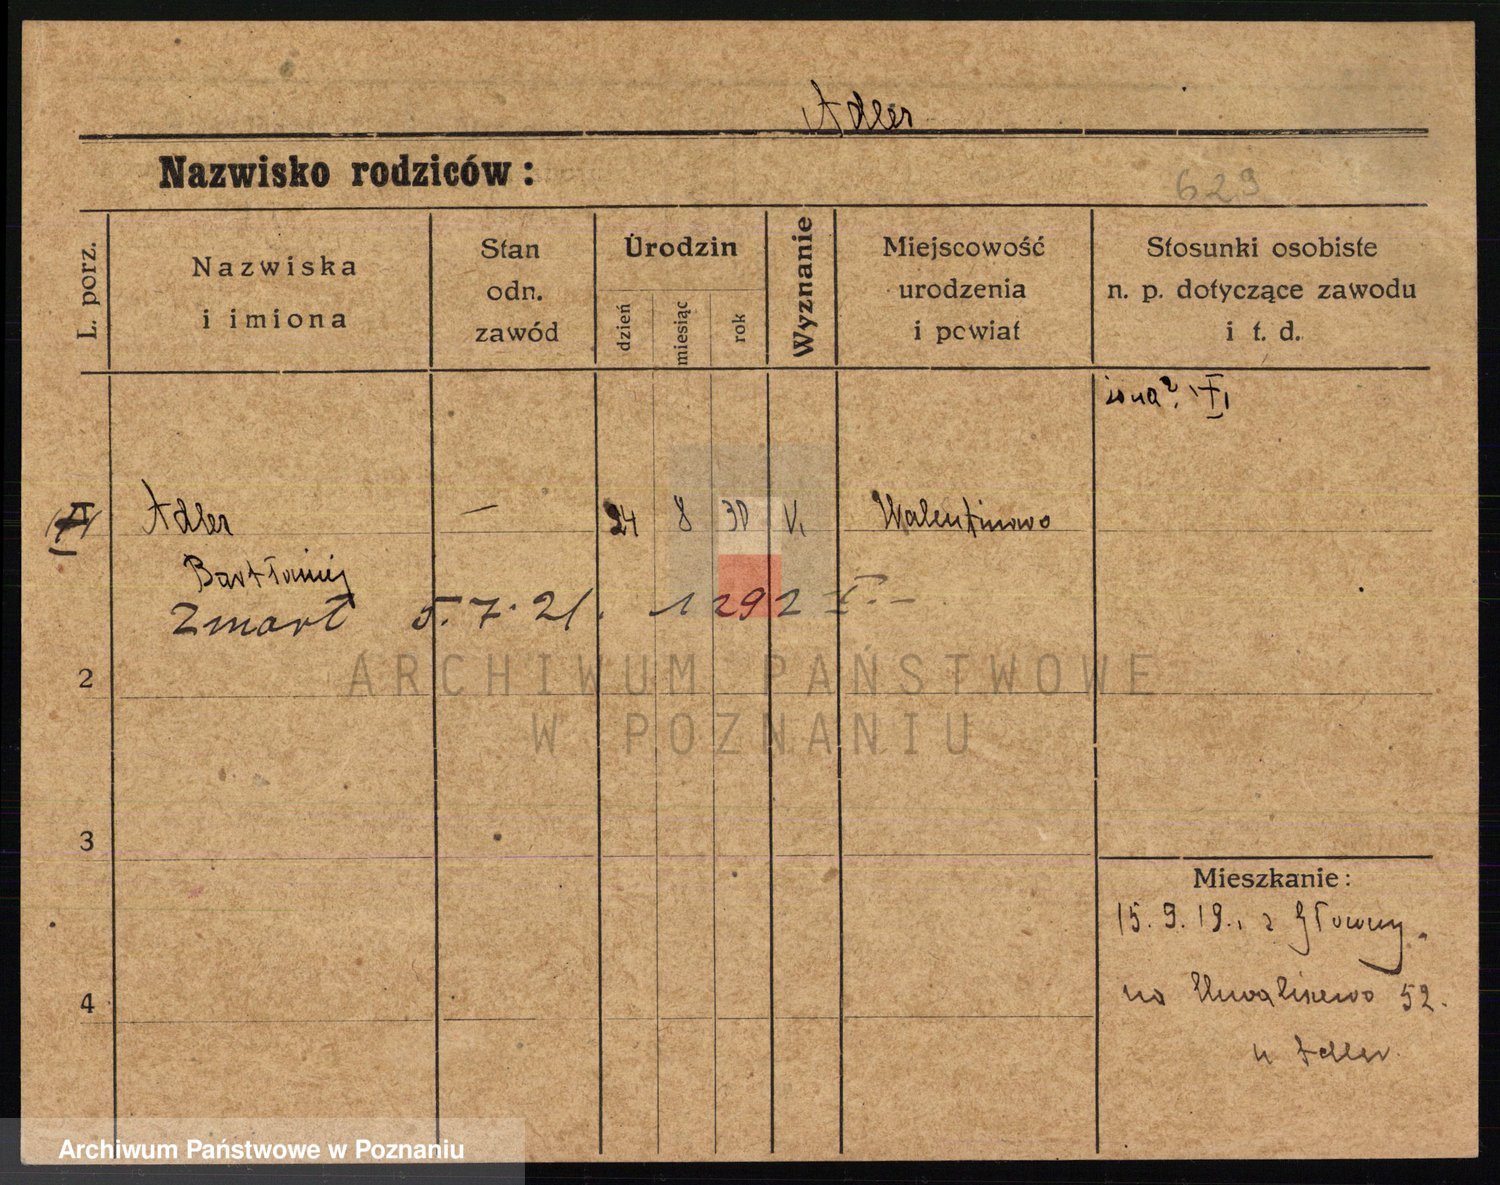 Adler
Nazwisko rodziców:
629
L. porz.
Nazwiska
i imiona
Stan
odn.
zawód
Urodzin
dzień
miesiąc
rok
Wyznanie
Miejscowość
urodzenia
i powiat
Stosunki osobiste
n. p. dotyczące zawodu
i t. d.
żona?
Adler
—
24
8
30
Walentinowo
Bartłomiej
Zmarł 5.7.21. 1292
ARCHIWUM PAŃSTWOWE
W POZNANIU
2
3
4
Mieszkanie:
15.9.19., z Główny
na Chwaliszewo 52.
u Adler.
Archiwum Państwowe w Poznaniu